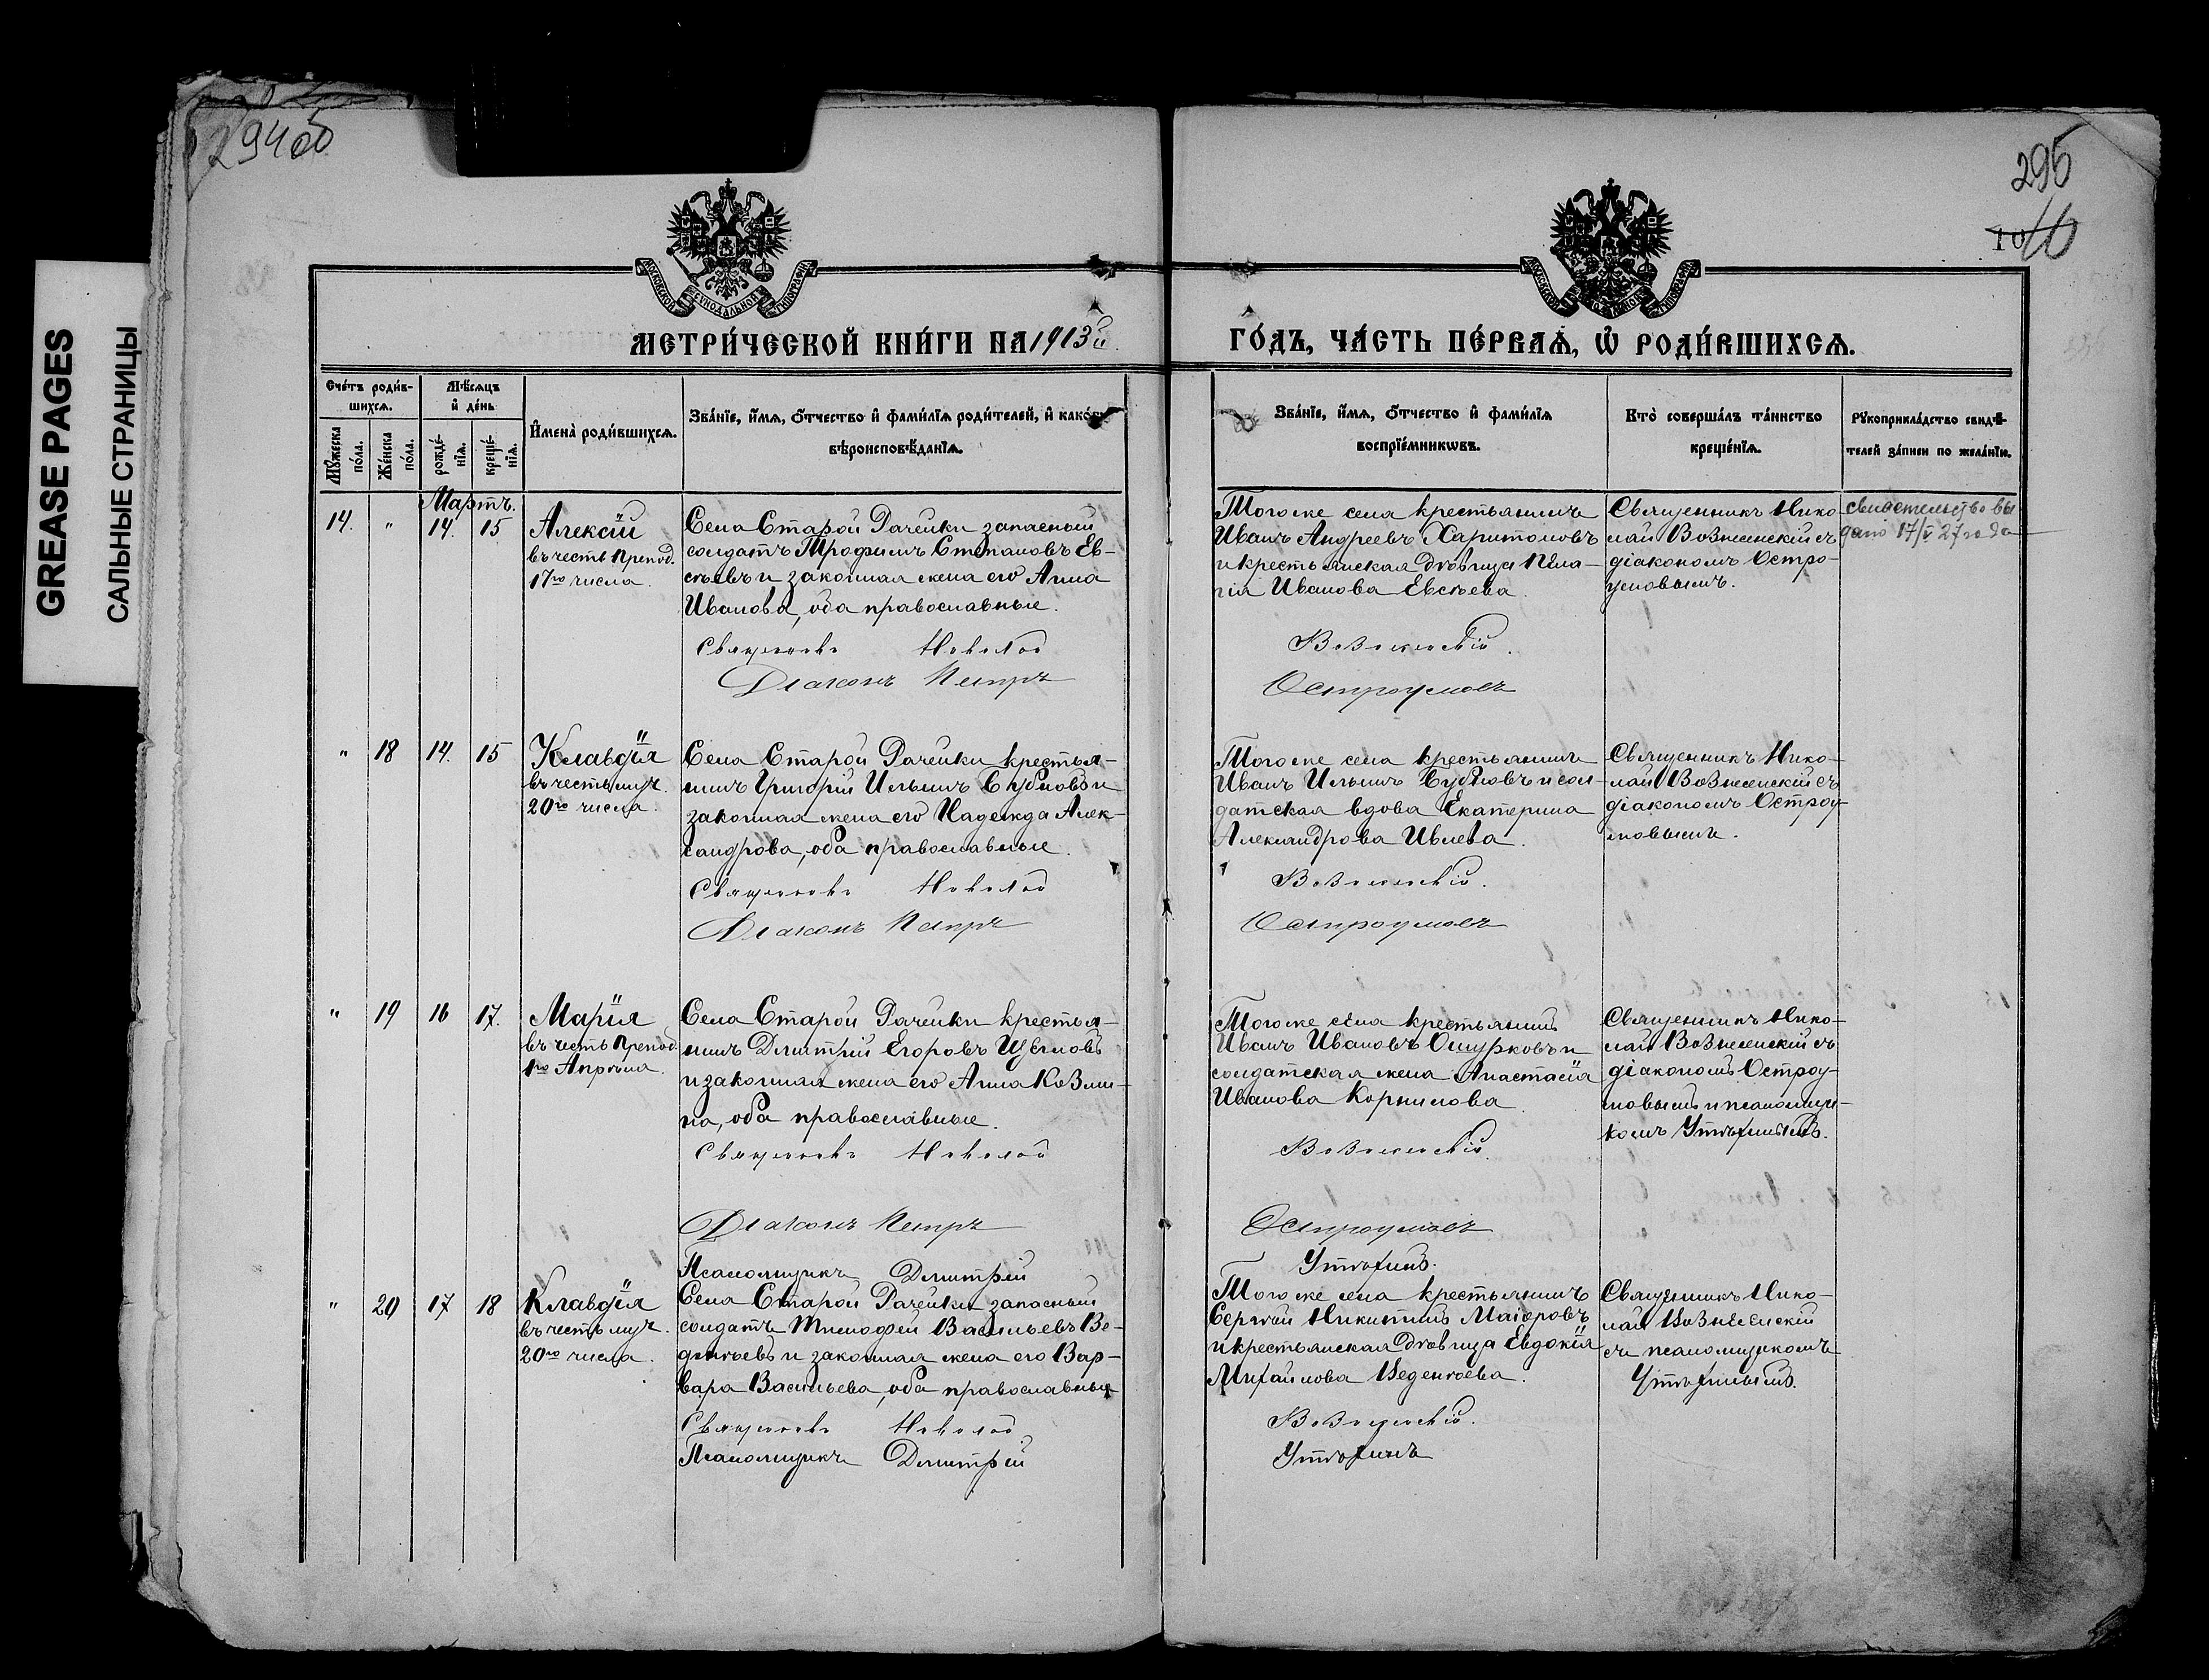 GREASE PAGES
САЛЬНЫЕ СТРАНИЦЫ
294об
295
10
МЕТРИ́ЧЕСКОЙ КНИ́ГИ НА 1913й
ГО́ДЪ, ЧА́СТЬ ПЕ́РВАѦ, Ѽ РОДИ́ВШИХСѦ.
Сче́тъ роди́в-
шихсѧ.
Мꙋ́жеска
по́ла.
Же́нска
по́ла.
Мѣ́сяцъ
и҆ де́нь
рожде́-
нїѧ.
креще́-
нїѧ.
И҆мена̀ роди́вшихсѧ.
Зва́нїе, и҆́мѧ, ѻ҆́тчество и҆ фами́лїѧ роди́телей, и҆ како́гѡ
вѣроисповѣ́данїѧ.
Зва́нїе, и҆́мѧ, ѻ҆́тчество и҆ фами́лїѧ
воспрїе́мникѡвъ.
Кто̀ соверша́лъ та́инство
креще́нїѧ.
Рꙋкоприкла́дство свидѣ́-
телей за́писи по жела́нїю.
Мартъ.
14. " 14. 15 Алексій
въ честь препод.
17го числа.
Села Старой Рачейки запасный
солдатъ Трофимъ Степановъ Ев-
сѣевъ и законная жена его Анна
Иванова, оба православные.
Священникъ Николай
Діаконъ Петръ
Того же села крестьянинъ
Иванъ Андреевъ Харитоновъ
и крестьянская дѣвица Пела-
гія Иванова Евсѣева.
Вознесенскій.
Остроумовъ
Священникъ Нико-
лай Вознесенскій съ
діакономъ Остро-
умовымъ.
свидетельство вы
дано 17/V 27 года
" 18 14. 15 Клавдія
въ честь муч.
20го числа.
Села Старой Рачейки крестья-
нинъ Григорій Ильинъ Бубновъ и
законная жена его Надежда Алек-
сандрова, оба православные.
Священникъ Николай
Діаконъ Петръ
Того же села крестьянинъ
Иванъ Ильинъ Бубновъ и сол-
датская вдова Екатерина
Александрова Ивлева.
Вознесенскій.
Остроумовъ
Священникъ Нико-
лай Вознесенскій съ
діакономъ Остроу-
мовымъ.
" 19 16 17. Марія
въ честь препод.
1го Апрѣля.
Села Старой Рачейки крестья-
нинъ Дмитрій Егоровъ Щегловъ
и законная жена его Анна Козми-
на, оба православные.
Священникъ Николай
Діаконъ Петръ
Псаломщикъ Димитрій
Того же села крестьянинъ
Иванъ Ивановъ Ошурковъ и
солдатская жена Анастасія
Иванова Корнилова.
Вознесенскій.
Остроумовъ
Утѣхинъ.
Священникъ Нико-
лай Вознесенскій съ
діакономъ Остроу-
мовымъ и псаломщи-
комъ Утѣхинымъ.
" 20 17 18 Клавдія
въ честь муч.
20го числа.
Села Старой Рачейки запасный
солдатъ Тимофей Васильевъ Ве-
денѣевъ и законная жена его Вар-
вара Васильева, оба православные
Священникъ Николай
Псаломщикъ Димитрій
Того же села крестьянинъ
Сергѣй Никитинъ Маіоровъ
и крестьянская дѣвица Евдокія
Михайлова Веденѣева.
Вознесенскій.
Утѣхинъ
Священникъ Нико-
лай Вознесенскій
съ псаломщикомъ
Утѣхинымъ.